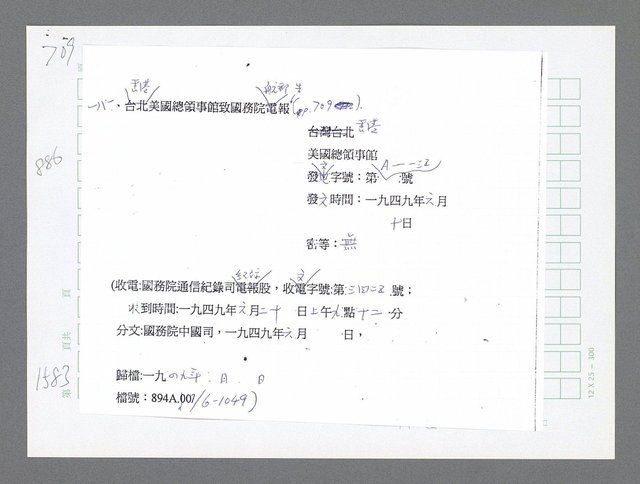 709
886
1583
香港
一八、台北美國總領事館致國務院電報(pp.709).
台灣台北 香港
美國總領事館
發文電字號：第 A一一三五 號
發文時間：一九四九年六月
十日
密等：無
紀錄 文
(收電:國務院通信紀錄司電報股，收電字號:第三四二五號；
收到時間:一九四九年六月二十 日上午九點十二分
分文:國務院中國司，一九四九年六月 日，
歸檔:一九四九年 月 日
檔號：894A.00(/6-1049)
頁
頁共
第
12 X 25 = 300